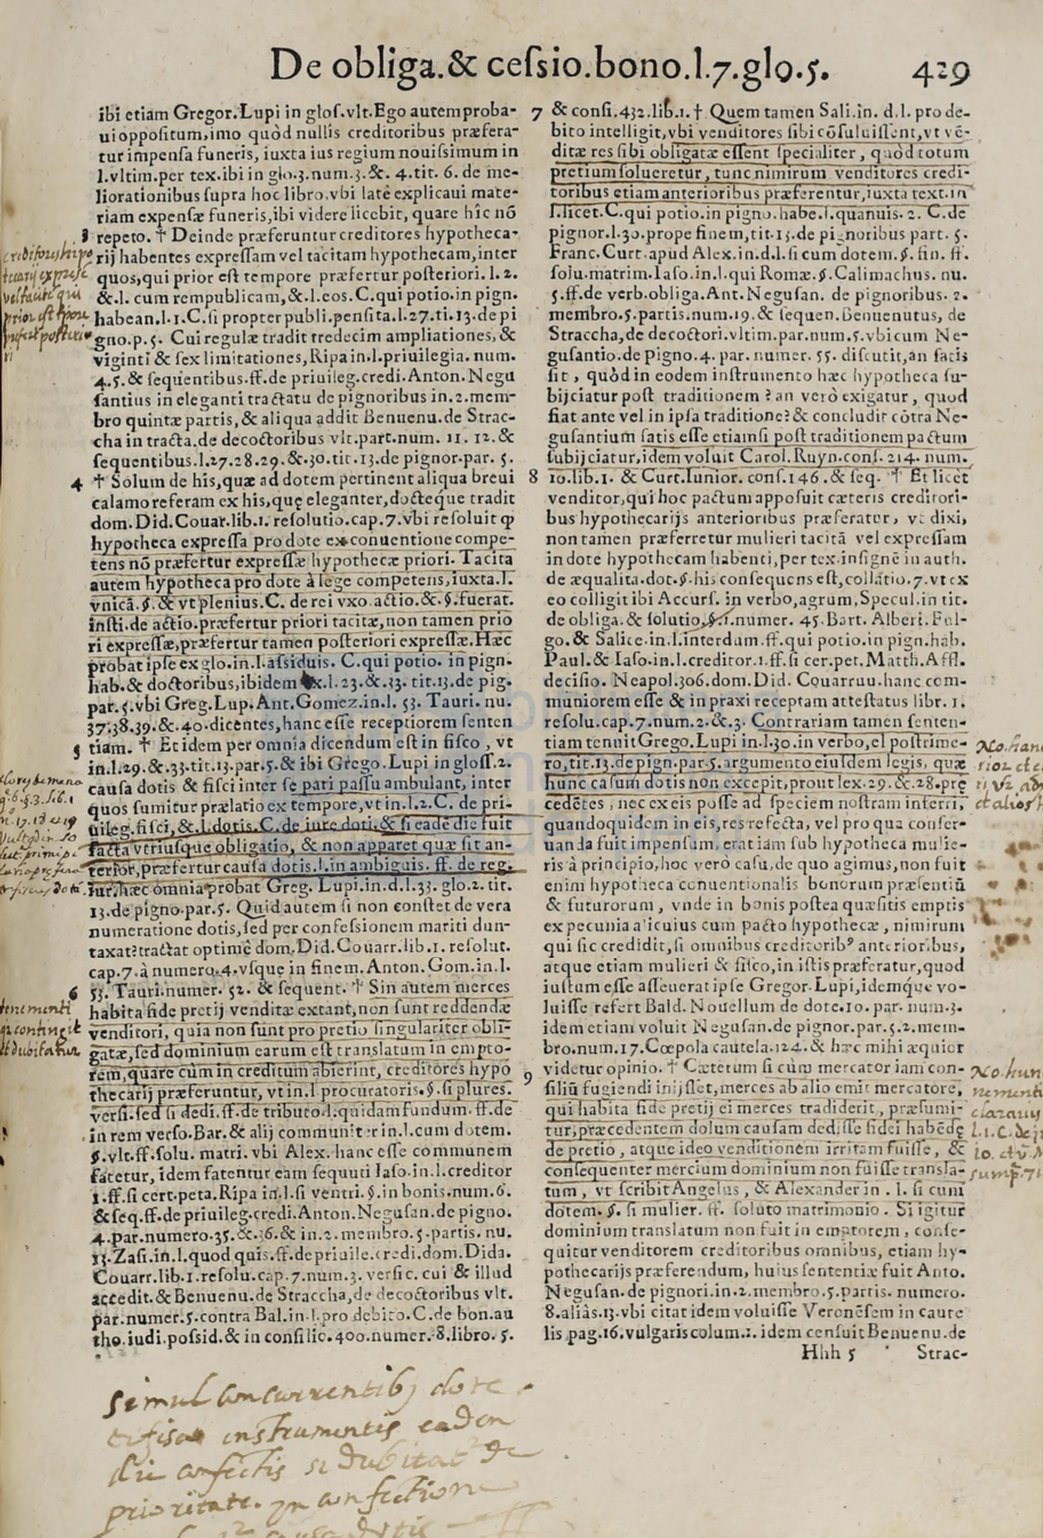 De obliga.& cesſio.bono.l.7.glo.5. 429
ibi etiam Gregor.Lupi in gloſ.vlt.Ego autem proba-
ui oppoſitum,imo quòd nullis creditoribus præfera-
tur impenſa funeris, iuxta ius regium nouiſsimum in
l.vltim.per tex.ibi in glo.3.num.3.&. 4.tit. 6. de me-
liorationibus ſupra hoc libro.vbi latè explicaui mate-
riam expenſæ funeris,ibi videre licebit, quare hîc nō
3 repeto. † Deinde præferuntur creditores hypotheca-
rij habentes expreſſam vel tacitam hypothecam,inter
quos,qui prior eſt tempore præfertur poſteriori.l.2.
&.l. cum rempublicam,&.l.eos.C.qui potio.in pign.
habean.l.1.C.ſi propter publi.penſita.l.27.ti.13.de pi
gno.p.5. Cui regulæ tradit tredecim ampliationes, &
viginti & ſex limitationes, Ripa in.l.priuilegia. num.
4.5.& ſequentibus.ff.de priuileg.credi.Anton.Negu
ſantius in eleganti tractatu de pignoribus in.2.mem-
bro quintæ partis,& aliqua addit Benuenu.de Strac-
cha in tracta.de decoctoribus vlt.part.num. 11. 12.&
ſequentibus.l.27.28.29.&.30.tit.13.de pignor.par. 5.
4 † Solum de his,quæ ad dotem pertinent aliqua breui
calamo referam ex his,quę eleganter,docteque tradit
dom.Did.Couar.lib.1. reſolutio.cap.7.vbi reſoluit ꝙ
hypotheca expreſſa pro dote ex conuentione compe-
tens nō præfertur expreſſæ hypothecæ priori. Tacita
autem hypotheca pro dote à lege competens,iuxta.l.
vnicā.§.& vt plenius.C. de rei vxo.actio.&.§.fuerat.
inſti.de actio.præfertur priori tacitæ,non tamen prio
ri expreſſæ,præfertur tamen poſteriori expreſſæ.Hæc
probat ipſe ex glo.in.l.aſsiduis. C.qui potio. in pign.
hab.& doctoribus,ibidem ex.l.23.&.33. tit.13.de pig.
par.5.vbi Greg.Lup.Ant.Gomez.in.l. 53. Tauri. nu.
37.38.39.&.40.dicentes,hanc eſſe receptiorem ſenten
5 tiam. † Et idem per omnia dicendum eſt in fiſco , vt
in.l.29.&.33.tit.13.par.5.& ibi Grego.Lupi in gloſſ.2.
cauſa dotis & fiſci inter ſe pari paſſu ambulant, inter
quos ſumitur prælatio ex tempore,vt in.l.2.C. de pri-
uileg.fiſci, &.l.dotis.C.de iure doti.& ſi eadē die fuit
facta vtriuſque obligatio, & non apparet quæ ſit an-
terior,præfertur cauſa dotis.l.in ambiguis. ff. de reg.
iur.hæc omnia probat Greg. Lupi.in.d.l.33. glo.2. tit.
13.de pigno.par.5. Quid autem ſi non conſtet de vera
numeratione dotis,ſed per confeſsionem mariti dun-
taxat?tractat optimè dom.Did.Couarr.lib.1. reſolut.
cap.7.à numero.4.vſque in finem.Anton.Gom.in.l.
6 53. Tauri.numer. 52. & ſequent. † Sin autem merces
habita fide pretij venditæ extant,non ſunt reddendæ
venditori, quia non ſunt pro pretio ſingulariter obli-
gatæ,ſed dominium earum eſt translatum in empto-
rem,quare cùm in creditum abierint, creditores hypo
thecarij præferuntur, vt in.l procuratoris.§.ſi plures.
verſi.ſed ſi dedi.ff.de tributo.l.quidam fundum.ff.de
in rem verſo.Bar.& alij communiter in.l.cum dotem.
§.vlt.ff.ſolu. matri. vbi Alex.hanc eſſe communem
fatetur, idem fatentur eam ſequuti Iaſo.in.l.creditor
1.ff.ſi cert.peta.Ripa in.l.ſi ventri.§.in bonis.num.6.
& ſeq.ff.de priuileg.credi.Anton.Neguſan.de pigno.
4.par.numero.35.&.36.& in.2.membro.5.partis. nu.
13.Zaſi.in.l.quod quis.ff.de priuile.credi.dom.Dida.
Couarr.lib.1.reſolu.cap.7.num.3. verſic. cui & illud
accedit.& Benuenu.de Straccha,de decoctoribus vlt.
par.numer.5.contra Bal.in.l.pro debito.C.de bon.au
tho.iudi.poſsid.& in conſilic.400.numer.8.libro. 5.
7 & conſi.432.lib.1.† Quem tamen Sali.in. d.l. pro de-
bito intelligit,vbi venditores ſibi cōſuluiſſent,vt vē-
ditæ res ſibi obligatæ eſſent ſpecialiter , quòd totum
pretium ſolueretur, tunc nimirum venditores credi-
toribus etiam anterioribus præferentur,iuxta text.in
l.licet.C.qui potio.in pigno.habe.l.quamuis. 2. C.de
pignor.l.30.prope finem,tit.13.de pignoribus part. 5.
Franc.Curt.apud Alex.in.d.l.ſi cum dotem.§. fin. ff.
ſolu.matrim.Iaſo.in.l.qui Romæ.§.Calimachus. nu.
5.ff.de verb.obliga.Ant.Neguſan. de pignoribus. 2.
membro.5.partis.num.19.& ſequen.Benuenutus, de
Straccha,de decoctori.vltim.par.num.5.vbi cum Ne-
guſantio.de pigno.4. par. numer. 55. diſcutit,an ſatis
ſit , quòd in eodem inſtrumento hæc hypotheca ſu-
bijciatur poſt traditionem ? an verò exigatur , quod
fiat ante vel in ipſa traditione?& concludit cōtra Ne-
guſantium ſatis eſſe etiamſi poſt traditionem pactum
ſubijciatur,idem voluit Carol.Ruyn.conſ. 214. num.
8 10.lib.1. & Curt.Iunior. conſ.146.& ſeq. † Et licet
venditor,qui hoc pactum appoſuit cæteris creditori-
bus hypothecarijs anterioribus præferatur, vt dixi,
non tamen præferretur mulieri tacitā vel expreſſam
in dote hypothecam habenti,per tex.inſignē in auth.
de æqualita.dot.§.his conſequens eſt,collatio.7.vt ex
eo colligit ibi Accurſ. in verbo,agrum,Specul.in tit.
de obliga.& ſolutio.§.1.numer. 45.Bart. Alberi. Ful-
go.& Salice.in.l.interdum.ff.qui potio.in pign.hab.
Paul.& Iaſo.in.l.creditor.1.ff.ſi cer.pet.Matth.Affl.
deciſio. Neapol.306.dom.Did. Couarruu.hanc com-
muniorem eſſe & in praxi receptam atteſtatus libr. 1.
reſolu.cap.7.num.2.&.3. Contrariam tamen ſenten-
tiam tenuit Grego.Lupi in.l.30.in verbo,el poſtrime-
ro,tit.13.de pign.par.5.argumento eiuſdem legis, quæ
hunc caſum dotis non excepit,prout lex.29.&.28.prę
cedētes , nec ex eis poſſe ad ſpeciem noſtram inferri,
quandoquidem in eis,res refecta, vel pro qua conſer-
uanda fuit impenſum, erat iam ſub hypotheca mulie-
ris à principio,hoc verò caſu,de quo agimus,non fuit
enim hypotheca conuentionalis bonorum præſentiū
& futurorum , vnde in bonis poſtea quæſitis emptis
ex pecunia alicuius cum pacto hypothecæ , nimirum
qui ſic credidit,ſi omnibus creditoribꝰ anterioribus,
atque etiam mulieri & fiſco,in iſtis præferatur,quod
iuſtum eſſe aſſeuerat ipſe Gregor.Lupi,idemque vo-
luiſſe refert Bald. Nouellum de dote.10. par. num.3.
idem etiam voluit Neguſan.de pignor.par.5.2.mem-
bro.num.17.Cœpola cautela.124.& hæc mihi æquior
9 videtur opinio. † Cæterum ſi cùm mercator iam con-
ſiliū fugiendi inijſſet,merces ab alio emit mercatore,
qui habita fide pretij ei merces tradiderit , præſumi-
tur,præcedentem dolum cauſam dediſſe fidei habēdę
de pretio , atque ideo venditionem irritam fuiſſe, &
conſequenter mercium dominium non fuiſſe transla-
tum , vt ſcribit Angelus , & Alexander in . l. ſi cum
dotem. §. ſi mulier. ff. ſoluto matrimonio . Si igitur
dominium translatum non fuit in emptorem , conſe-
quitur venditorem creditoribus omnibus, etiam hy-
pothecarijs præferendum, huius ſententiæ fuit Anto.
Neguſan.de pignori.in.2.membro.5.partis. numero.
8.aliàs.13.vbi citat idem voluiſſe Veronēſem in caute
lis pag.16.vulgaris colum.1. idem cenſuit Benuenu.de
Hhh 5 Strac-
simul concurrentib; dote
et fisco instrumentis eadem
die confectis si dubitat de
prioritate. in confectione